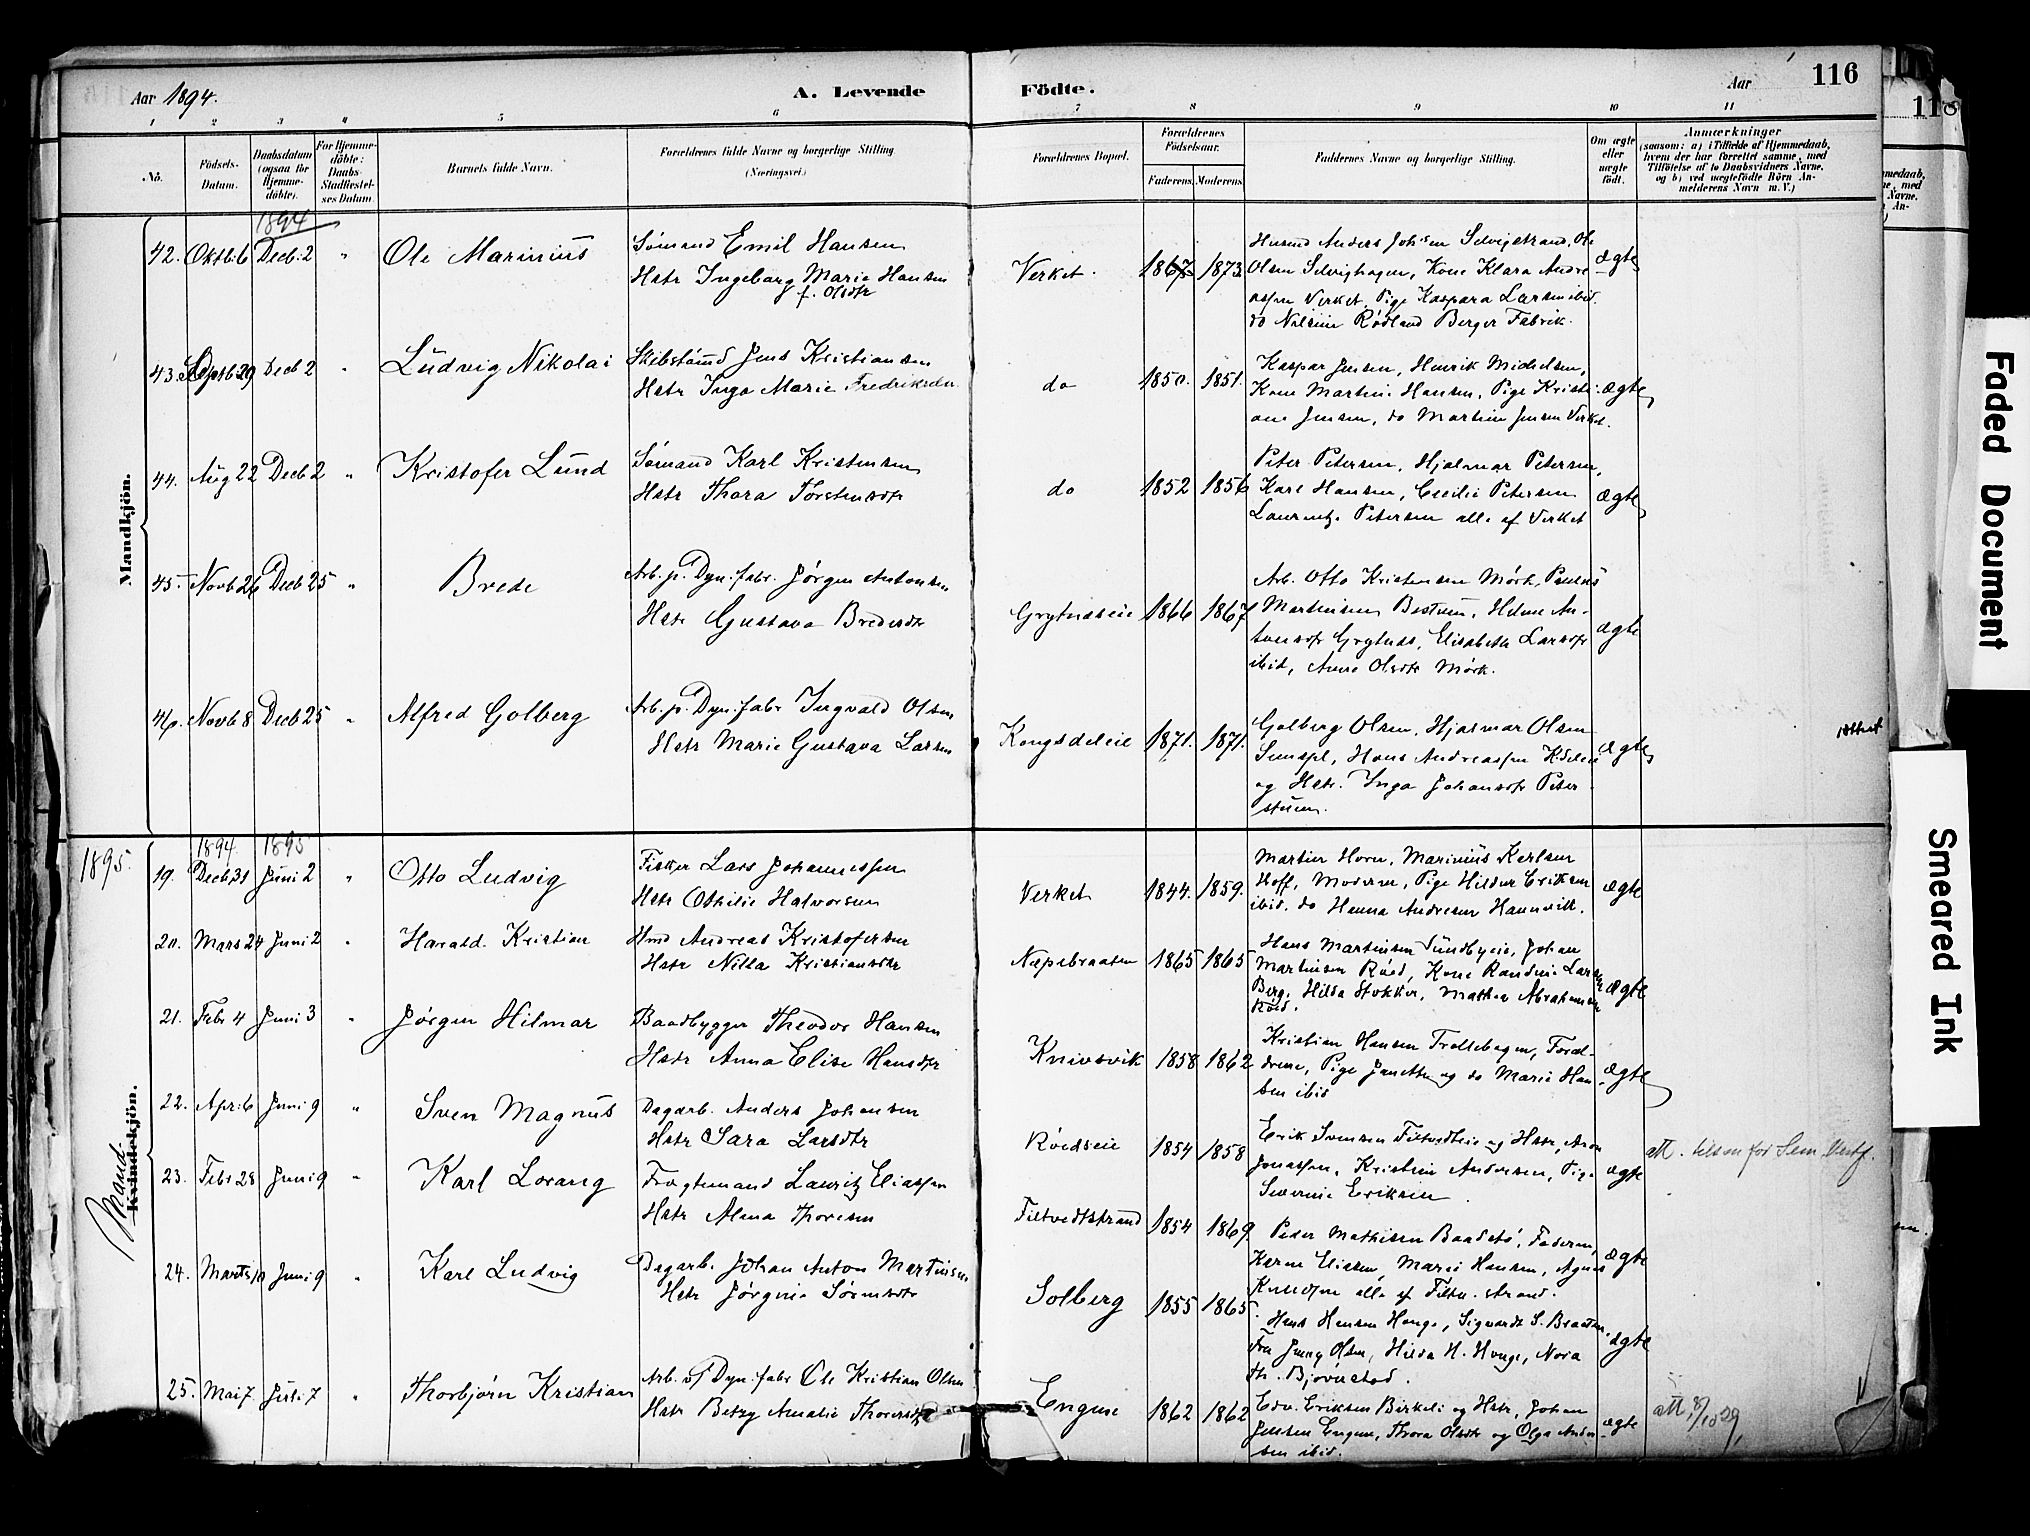 Aar 1894. A. Levende Födte. Aar 116
1 2 3 4 5 6 7 8 9 10 11
No.
Födsels-Datum.
Daabsdatum (ogsaa for Hjemme-döbte).
For Hjemme-döbte: Daabs-Stadfæstel-ses Datum.
Barnets fulde Navn.
Forældrenes fulde Navne og borgerlige Stilling (Næringsvei.)
Forældrenes Bopæl.
Forældrenes Födselsaar.
Faderens. Moderens.
Faddernes Navne og borgerlige Stilling.
Om ægte eller uægte födt.
Anmærkninger
(saasom: a) i Tilfælde af Hjemmedaab,
hvem der har forrettet samme, med
Tilföielse af to Daabsvidners Navne.
og b) ved uægtefödte Börn An-
melderens Navn m. V.)
Mandkjön.
1894
42. Oktb: 6 Decb: 2 " Ole Marinius
Sømand Emil Hansen
Hstr Ingeborg Marie Hansen
f. Olsdtr
Verket. 1867 1873
Husmd Anders Johsen Selvigstrand, Ole
Olsen Selvighagen, Kone Klara Andre
assen Verket, Pige Kaspara Larsen ibid.
do Nilsine Rødland Berger Fabrik.
ægte
43. Septb 29 Decb 2 " Ludvig Nikolai
Skibstømd Jens Kristiansen
Hstr Inga Marie Fredriksdtr
do 1850. 1851.
Kaspar Jensen, Henrik Mickelsen,
Kone Martine Hansen, Pige Kristi-
ane Jensen, do Martine Jensen Verket.
ægte
44. Aug 22 Decb 2 " Kristofer Lund
Sømand Karl Kristensen
Hstr Thora Torstensdtr
do 1852 1856
Peter Petersen, Hjalmar Petersen,
Karl Hansen, Cecilie Petersen
Laurentze Petersen alle af Verket
ægte
45. Novb 26 Decb 25 " Brede
Arb. p. Dyn. fabr. Jørgen Antonsen
Hstr Gustava Bredesdtr
Grytneseie 1866 1867
Arb. Otto Kristensen Mörk, Paulus
Martinsen Bestum, Helene An-
tonsdtr Grytnes, Elisabeth Larsdtr
ibid, Anne Olsdtr Mörk.
ægte
46. Novb 8 Decb 25 " Alfred Golberg
Arb. p. Dyn. fabr Ingvald Olsen
Hstr Marie Gustava Larsen
Kongsdeleie 1871. 1871.
Golberg Olsen, Hjalmar Olsen
Semspl, Hans Andreassen K.deleie
og Hstr. Inga Johansdtr Peter
stuen.
ægte
Attest
1895. 1894 1895
Mand Kvindekjön.
19. Decb 31 Juni 2 " Otto Ludvig
Fisker Lars Johannessen
Hstr Othilie Halvorsen
Verket 1844. 1859.
Martin Horn, Marinius Karlsen
Hoff, Moderen, Pige Hildur Eriksen
ibid. do Hanna Andresen Hannevitt.
ægte
20. Mars 24 Juni 2 " Harald Kristian
Hmd Andreas Kristofersen
Hstr Nilla Kristiansdtr
Næpebraaten 1865 1865
Hans Martinsen Sundbyeie, Johan
Martinsen Röed, Kone Randine Larsen
Berg, Hilda Stokker, Mathea Abrahamsen
Röed.
ægte
21. Febr 4 Juni 3 " Jørgen Hilmar
Baadbygger Theodor Hansen
Hstr Anna Elise Hansdtr
Knivsvik 1858 1862
Kristian Hansen Trollebogen, Foræl-
drene, Pige Janette og do Marie Han-
sen ibid
ægte
22. Apr: 6 Juni 9 " Sven Magnus
Dagarb. Anders Johansen
Hstr Sara Larsdtr
Röedseie 1854 1858
Erik Svensen Filtvedteie og Hstr, Aron
Jonassen, Kristine Andersen, Pige
Severine Eriksen.
ægte
att. til en for Sem Vestf.
23. Febr 28 Juni 9 " Karl Lorang
Fragtemand Lauritz Eliassen
Hstr Alma Thoresen
Filtvedtstrand 1854 1869
Peder Mathisen Baadstö, Faderen,
Karen Eliassen, Marie Hansen, Agnes
Knudsen alle af Filtv. strand.
ægte
24. Marts 10 Juni 9 " Karl Ludvig
Dagarb. Johan Anton Martinsen
Hstr Jørgine Sörensdtr
Solberg 1855 1865
Hans Hansen Hauge, Sigvardt S. Braaten,
Fru Jenny Olsen, Hilda H. Hauge, Nora
Th. Björnstad.
ægte
25. Mai 7 Juli 7 " Thorbjørn Kristian
Arb. p Dyn. fabr Ole Kristian Olsen
Hstr Betzy Amalie Thoresdtr
Engene 1862 1862
Edv. Eriksen Birkeli og Hstr, Johan
Jensen Engene, Thora Olsdtr og Olga Ander-
sen ibid.
ægte
att. 8/10 39
118
Faded Document
Smeared Ink